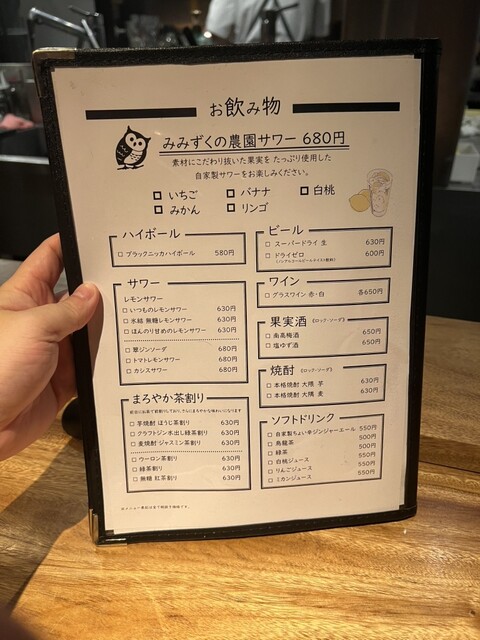 お飲み物
みみずくの農園サワー 680円
素材にこだわり抜いた果実を たっぷり使用した
自家製サワーをお楽しみください。
□ いちご □ バナナ □ 白桃
□ みかん □ リンゴ
ハイボール
□ ブラックニッカハイボール 580円
サワー
レモンサワー
□ いつものレモンサワー 630円
□ 氷結 無糖レモンサワー 630円
□ ほんのり甘めのレモンサワー 630円
□ 翠ジンソーダ 680円
□ トマトレモンサワー 680円
□ カシスサワー 680円
まろやか茶割り
□ 芋焼酎 ほうじ茶割り 630円
□ クラフトジン水出し緑茶割り 630円
□ 麦焼酎 ジャスミン茶割り 630円
□ ウーロン茶割り 630円
□ 緑茶割り 630円
□ 無糖 紅茶割り 630円
ビール
□ スーパードライ 生 630円
□ ドライゼロ 600円
ワイン
□ グラスワイン 赤・白 各650円
果実酒 《ロック・ソーダ》
□ 南高梅酒 650円
□ 塩ゆず酒 650円
焼酎 《ロック・ソーダ》
□ 本格焼酎 大隅 芋 630円
□ 本格焼酎 大隅 麦 630円
ソフトドリンク
□ 自家製ちょい辛ジンジャーエール 550円
□ 烏龍茶 500円
□ 緑茶 500円
□ 白桃ジュース 550円
□ りんごジュース 550円
□ ミカンジュース 550円